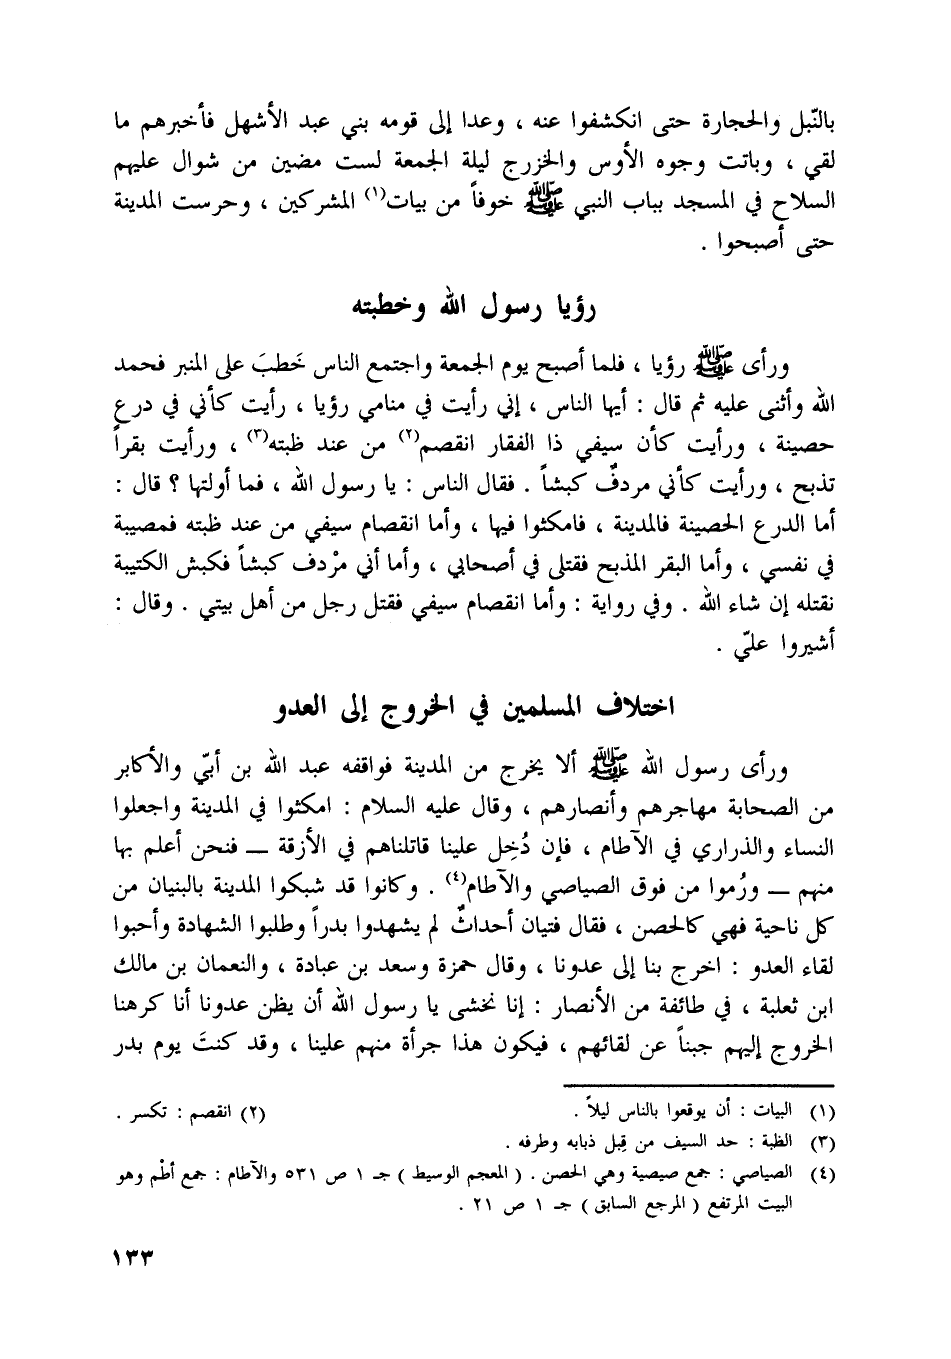 بالنّبل والحجارة حتى انكشفوا عنه ، وعدا إلى قومه بني عبد الأشهل فأخبرهم ما
لقي ، وباتت وجوه الأوس والخزرج ليلة الجمعة لست مضين من شوال عليهم
السلاح في المسجد بباب النبي ﷺ خوفاً من بيات(١) المشركين ، وحرست المدينة
حتى أصبحوا .
رؤيا رسول الله وخطبته
ورأى ﷺ رؤيا ، فلما أصبح يوم الجمعة واجتمع الناس خَطبَ على المنبر فحمد
الله وأثنى عليه ثم قال : أيها الناس ، إني رأيت في منامي رؤيا ، رأيت كأني في درع
حصينة ، ورأيت كأن سيفي ذا الفقار انقصم(٢) من عند ظبته(٣) ، ورأيت بقراً
تذبح ، ورأيت كأني مردفٌ كبشاً . فقال الناس : يا رسول الله ، فما أولتها ؟ قال :
أما الدرع الحصينة فالمدينة ، فامكثوا فيها ، وأما انقصام سيفي من عند ظبته فمصيبة
في نفسي ، وأما البقر المذبح فقتلى في أصحابي ، وأما أني مرْدف كبشاً فكبش الكتيبة
نقتله إن شاء الله . وفي رواية : وأما انقصام سيفي فقتل رجل من أهل بيتي . وقال :
أشيروا عليّ .
اختلاف المسلمين في الخروج إلى العدو
ورأى رسول الله ﷺ ألا يخرج من المدينة فواقفه عبد الله بن أبيّ والأكابر
من الصحابة مهاجرهم وأنصارهم ، وقال عليه السلام : امكثوا في المدينة واجعلوا
النساء والذراري في الآطام ، فإن دُخِل علينا قاتلناهم في الأزقة — فنحن أعلم بها
منهم — ورُموا من فوق الصياصي والآطام(٤) . وكانوا قد شبكوا المدينة بالبنيان من
كل ناحية فهي كالحصن ، فقال فتيان أحداثٌ لم يشهدوا بدراً وطلبوا الشهادة وأحبوا
لقاء العدو : اخرج بنا إلى عدونا ، وقال حمزة وسعد بن عبادة ، والنعمان بن مالك
ابن ثعلبة ، في طائفة من الأنصار : إنا نخشى يا رسول الله أن يظن عدونا أنا كرهنا
الخروج إليهم جبناً عن لقائهم ، فيكون هذا جرأة منهم علينا ، وقد كنتَ يوم بدر
(١) البيات : أن يوقعوا بالناس ليلاً . (٢) انقصم : تكسر .
(٣) الظبة : حد السيف من قِبل ذبابه وطرفه .
(٤) الصياصي : جمع صيصية وهي الحصن . ( المعجم الوسيط ) جـ ١ ص ٥٣١ والآطام : جمع أطْم وهو
البيت المرتفع ( المرجع السابق ) جـ ١ ص ٢١ .
١٣٣